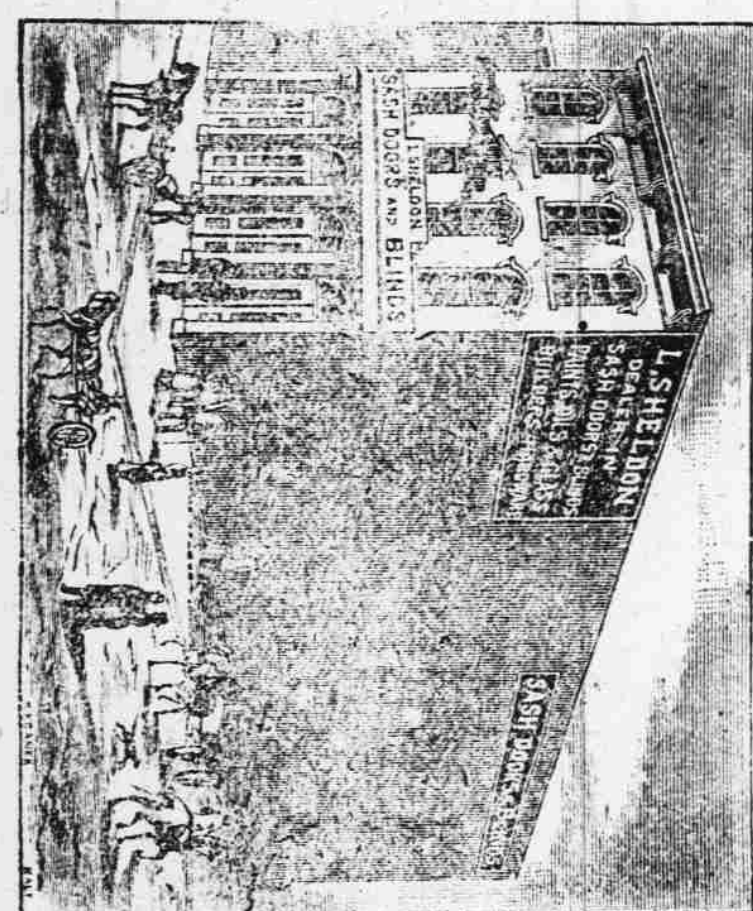 L. SHELDON
SASH DOORS AND BLINDS
L. SHELDON
DEALER IN
SASH DOORS BLINDS
PAINTS OILS & GLASS
BUILDERS HARDWARE
SASH DOORS & BLINDS